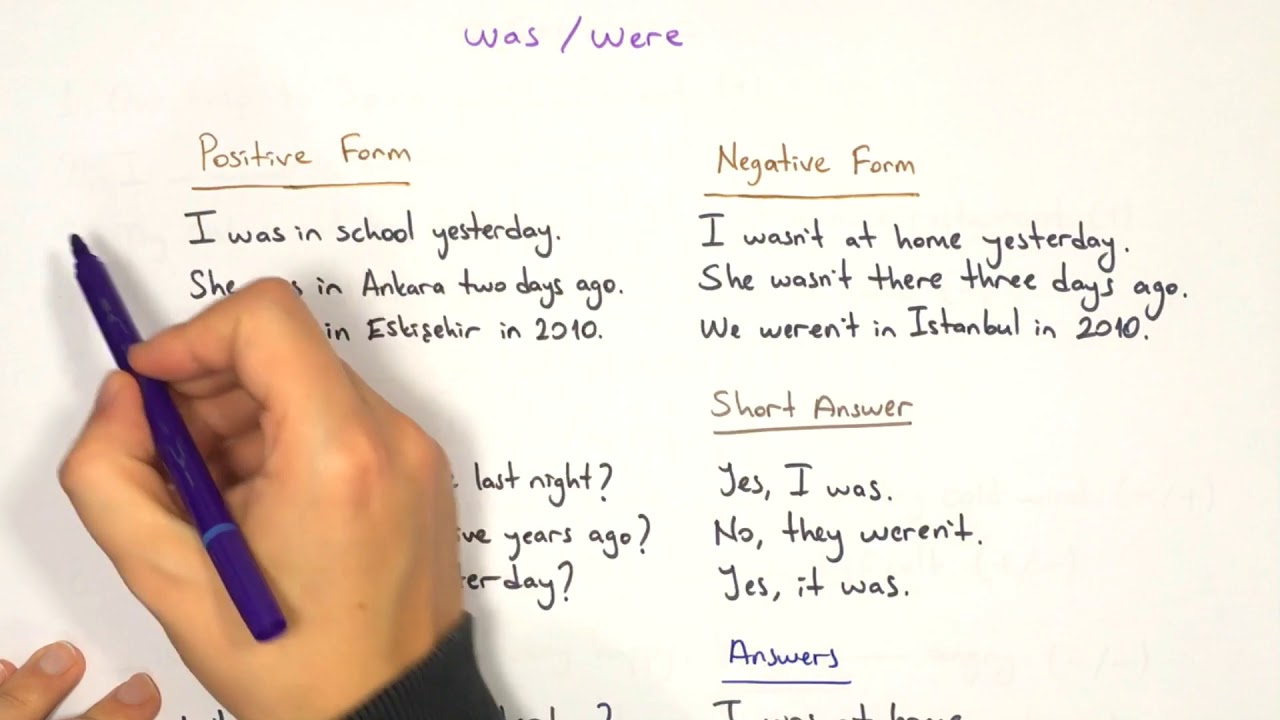 was / were
Positive Form
I was in school yesterday.
She in Ankara two days ago.
in Eskişehir in 2010.
Negative Form
I wasn't at home yesterday.
She wasn't there three days ago.
We weren't in Istanbul in 2010.
last night?
years ago?
Short Answer
Yes, I was.
No, they weren't.
Yes, it was.
Answers
I was at home